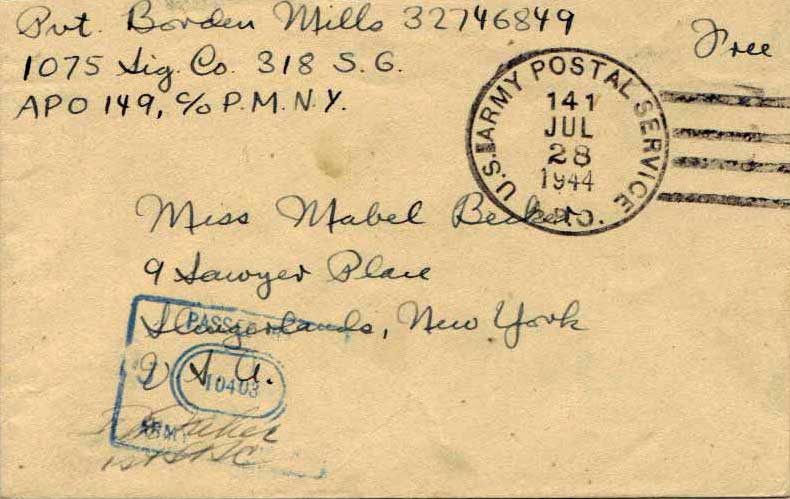 Pvt. Borden Mills 32746849
1075 Sig. Co. 318 S.G.
APO 149, c/o P.M.N.Y.
Free
U.S. ARMY POSTAL SERVICE
141
JUL
28
1944
A.P.O.
Miss Mabel Becker
9 Sawyer Place
Slingerlands, New York
U.S.A.
PASSED
10403
ARMY